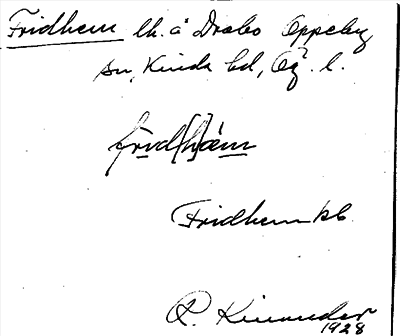 Fridhem lh. å Drabo Oppeby
sn, Kinda hd, Ög. l.
frid[h]äm
Fridhem kb
R. Kinander
1928